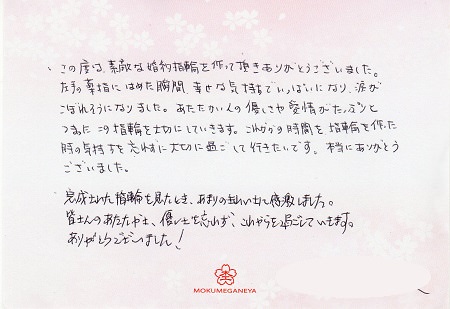 この度は、素敵な婚約指輪を作って頂きありがとうございました。
左手の薬指にはめた瞬間、幸せな気持ちでいっぱいになり、涙が
こぼれそうになりました。あたたかい人の優しさや愛情がたっぷりと
つまったこの指輪を大切にしていきます。これからの時間を指輪を作った
時の気持ちを忘れずに大切に過ごして行きたいです。本当にありがとう
ございました。
完成された指輪を見たとき、あまりの美しい出して感激しました。
皆さんのあたたかさ、優しさを忘れず、これからを過ごしていきます。
ありがとうございました！
MOKUMEGANEYA